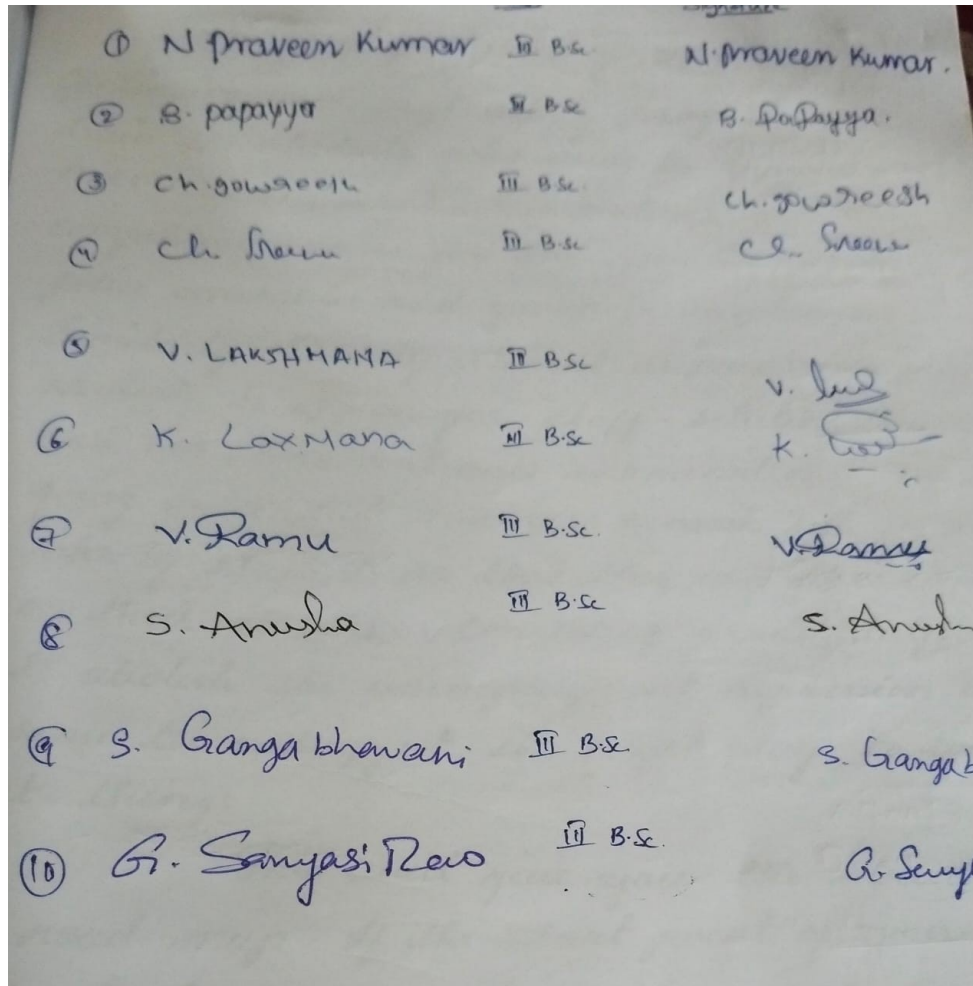 Signature
① N Praveen Kumar III B.Sc. N. Praveen Kumar.
② B. papayya III B.Sc B. Papayya.
③ Ch. gowreesh III B.Sc. Ch. gowreesh
④ Ch. III B.Sc Ch.
⑤ V. LAKSHMANA III B.Sc V.
⑥ K. LaxMana III B.Sc K.
⑦ V. Ramu III B.Sc. V. Ramu
⑧ S. Anusha III B.Sc S. Anush
⑨ S. Ganga bhavani III B.Sc S. Ganga b
⑩ G. Sanyasi Rao III B.Sc. G. Sany